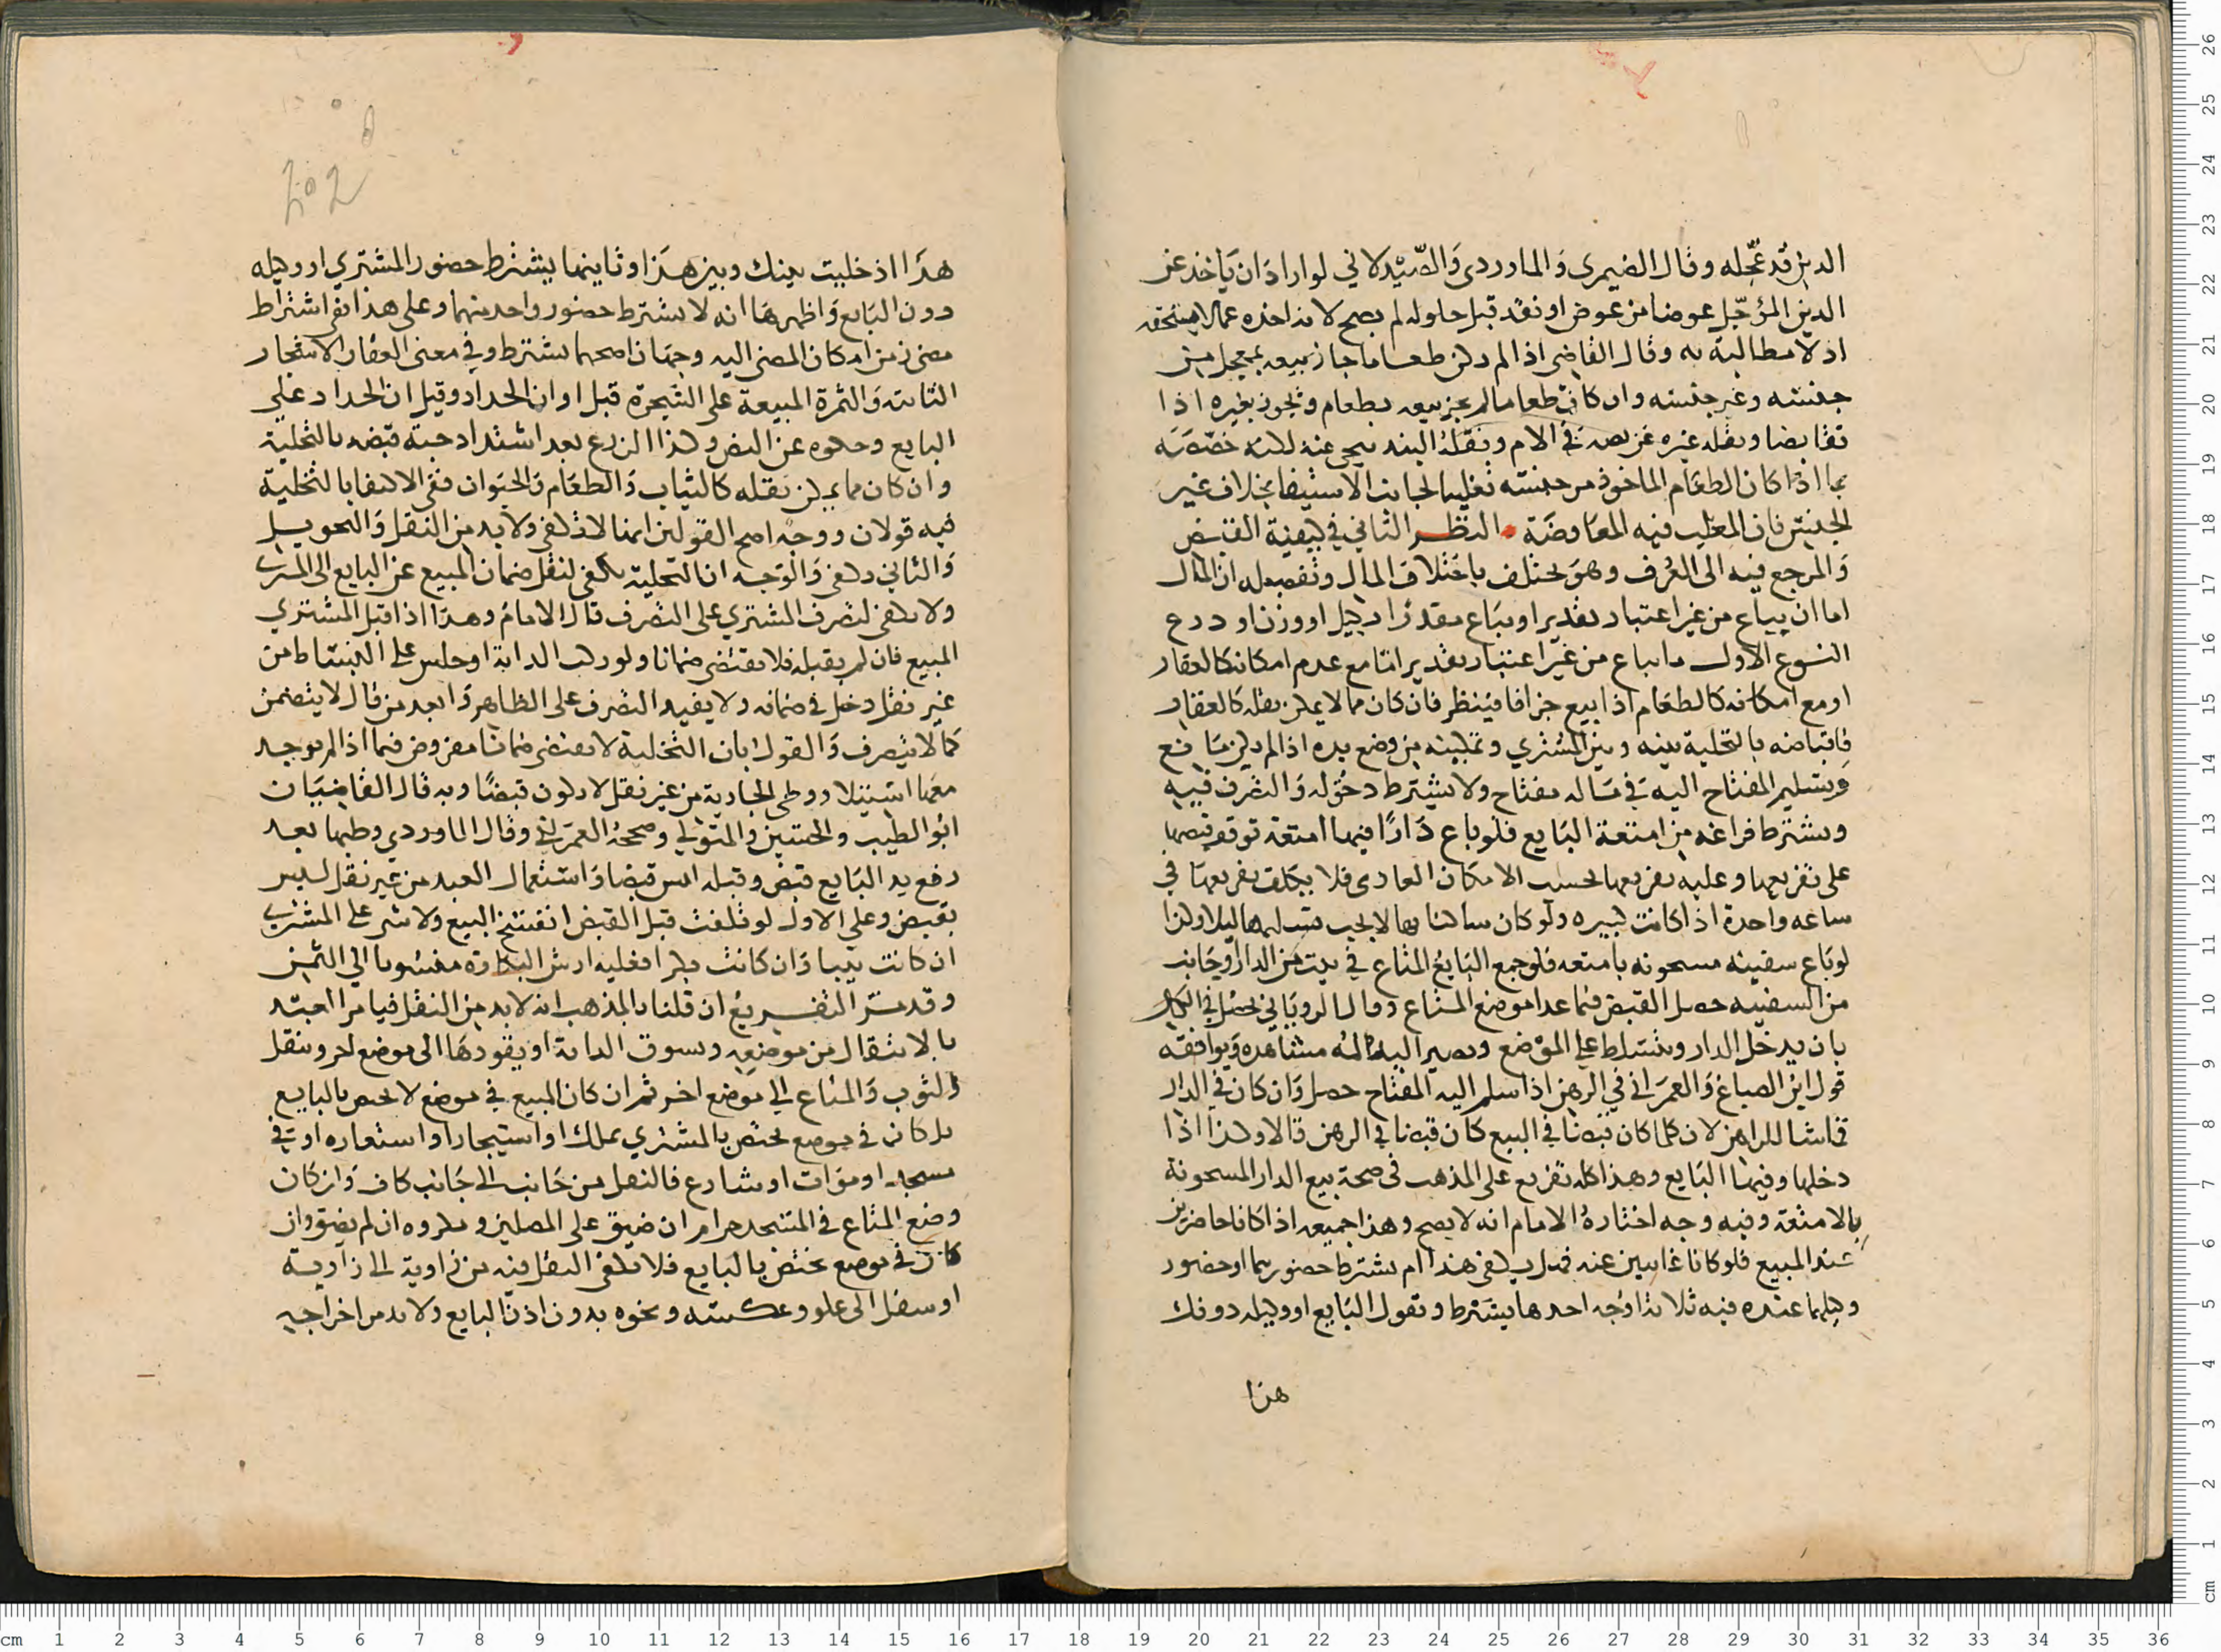 الدين قد عجله وقال الصيمري والماوردي والصيدلاني لو اراد ان ياخذ عن
الدين المؤجل عوضا من عوض او نقد قبل حلوله لم يصح لانه اخذه عما لا يستحقه
اذ لا مطالبة به وقال القاضي اذا لم يكن طعاما جاز بيعه بمعجل من
جنسه وغير جنسه وان كان طعاما لم يجز بيعه بطعام ويجوز بغيره اذا
تقابضا ونقله غيره عن نصه في الام ونقله البندنيجي عنه لكنه خصصه
بما اذا كان الطعام الماخوذ من جنسه تغليبا لجانب الاستيفا بخلاف غير
الجنس فان المغلب فيه المعاوضة النظر الثاني في كيفية القبض
والمرجع فيه الى العرف وهو يختلف باختلاف المال وتفصيله ان المال
اما ان يباع من غير اعتبار تقدير او يباع مقدرا بكيل او وزن او ذرع
النوع الاول ما يباع من غير اعتبار تقدير اما مع عدم امكانه كالعقار
او مع امكانه كالطعام اذا بيع جزافا فينظر فان كان مما لا يمكن نقله كالعقار
فاقباضه بالتخلية بينه وبين المشتري وتمكينه من وضع يده اذا لم يكن مانع
وبتسليم المفتاح اليه في ماله مفتاح ولا يشترط دخوله والتصرف فيه
ويشترط فراغه من امتعة البايع فلو باع دارا فيها امتعة توقف قبضها
على تفريغها وعليه تفريغها بحسب الامكان العادي فلا يكلف تفريغها في
ساعه واحدة اذا كانت كبيره ولو كان ساكنا بها لا يجب تسليمها ليلا وكذا
لو باع سفينه مسحونه بامتعه فلو جمع البايع المتاع في بيت من الدار وجانب
من السفينه حصل القبض فيما عدا موضع المتاع وقال الروياني يحصل في الكل
بان يدخل الدار ويتسلط على الموضع ويصير اليه ماله مشاهده ويوافقه
قول ابن الصباغ والعمراني في الرهن اذا سلم اليه المفتاح حصل وان كان في الدار
قماشا للراهن لان كلما كان قبضا في البيع كان قبضا في الرهن قالا وكذا اذا
دخلها وفيها البايع وهذا كله تفريع على المذهب في صحة بيع الدار المسحونة
بالامتعة وفيه وجه اختاره الامام انه لا يصح وهذا جميعه اذا كانا حاضرين
عند المبيع فلو كانا غايبين عنه فهل يكفي هذا ام يشترط حضورهما او حضور
وكيلهما عنده فيه ثلاثة اوجه احدها يشترط ويقول البايع او وكيله دونك
هذا
هذا اذ خليت بينك وبين هذا وثانيها يشترط حضور المشتري او وكيله
دون البايع واظهرها انه لا يشترط حضور واحد منهما وعلى هذا ففي اشتراط
مضى زمن امكان المضي اليه وجهان اصحهما يشترط وفي معنى العقار الاشجار
الثابتة والثمرة المبيعة على الشجرة قبل اوان الجداد وقيل ان الجداد على
البايع وحكوه عن النص وكذا الزرع بعد اشتداد حبه قبضه بالتخلية
وان كان مما يمكن نقله كالثياب والطعام والحيوان ففي الاكتفا بالتخلية
فيه قولان ووجه اصح القولين انها لا تكفي ولا بد من النقل والتحويل
والثاني تكفي والوجه ان التخلية تكفي لنقل ضمان المبيع عن البايع الى المشتري
ولا تكفي لتصرف المشتري على التصرف قال الامام وهذا اذا قبل المشتري
المبيع فان لم يقبله فلا يقتضي ضمانا ولو ركب الدابة او جلس على البساط من
غير نقل دخل في ضمانه ولا يفيد التصرف على الظاهر وابعد من قال لا يتضمن
كما لا يتصرف والقول بان التخلية لا تقتضي ضمانا مفروض فيما اذا لم يوجد
معها استيلا ووطي الجارية من غير نقل لا يكون قبضا وبه قال القاضيان
ابو الطيب والحسين والمتولي وصححه العمراني وقال الماوردي وطيها بعد
رفع يد البايع قبض وقبله ليس قبضا واستعمال العبد من غير نقل ليس
بقبض وعلى الاول لو تلفت قبل القبض انفسخ البيع ولا شي على المشتري
ان كانت ثيبا وان كانت بكرا فعليه ارش البكارة منسوبا الى الثمن
وقد مر التفريع ان قلنا بالمذهب انه لا بد من النقل فيامر العبد
بالانتقال من موضعه ويسوق الدابة او يقودها الى موضع اخر وينقل
الثوب والمتاع الى موضع اخر ثم ان كان المبيع في موضع لا يختص بالبايع
بل كان في موضع يختص بالمشتري بملك او استيجار او استعاره او في
مسجد او موات او شارع فالنقل من جانب الى جانب كاف وان كان
وضع المتاع في المسجد حرام ان ضيق على المصلين ومكروه ان لم يضيق وان
كان في موضع يختص بالبايع فلا يكفي النقل فيه من زاوية الى زاوية
او سفل الى علو وعكسه ونحوه بدون اذن البايع ولا بد من اخراجه